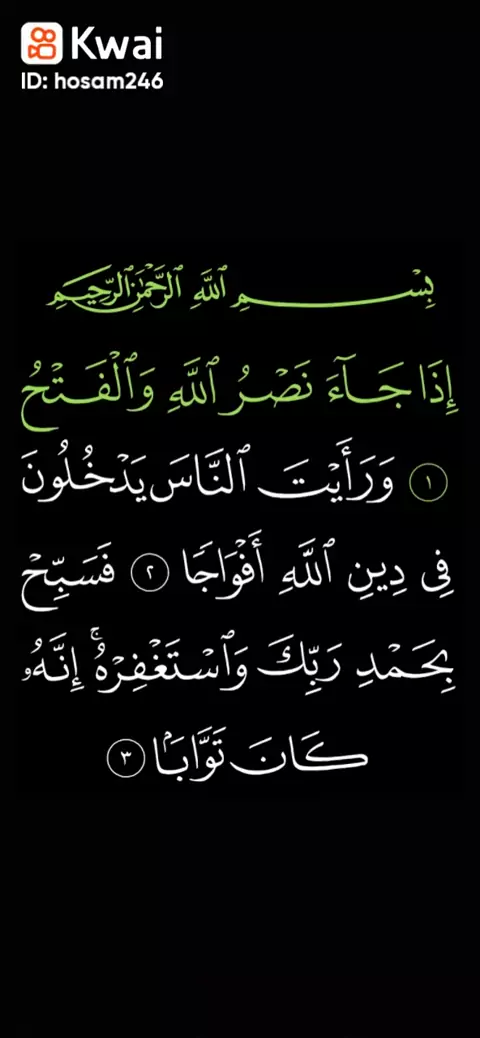 Kwai
ID: hosam246
بِسْمِ ٱللَّهِ ٱلرَّحْمَٰنِ ٱلرَّحِيمِ
إِذَا جَآءَ نَصْرُ ٱللَّهِ وَٱلْفَتْحُ
١ وَرَأَيْتَ ٱلنَّاسَ يَدْخُلُونَ
فِى دِينِ ٱللَّهِ أَفْوَاجًا ٢ فَسَبِّحْ
بِحَمْدِ رَبِّكَ وَٱسْتَغْفِرْهُ ۚ إِنَّهُۥ
كَانَ تَوَّابًۢا ٣